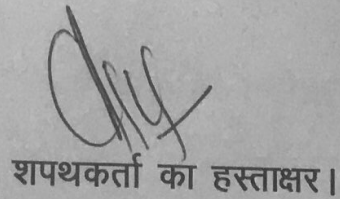 शपथकर्ता का हस्ताक्षर।